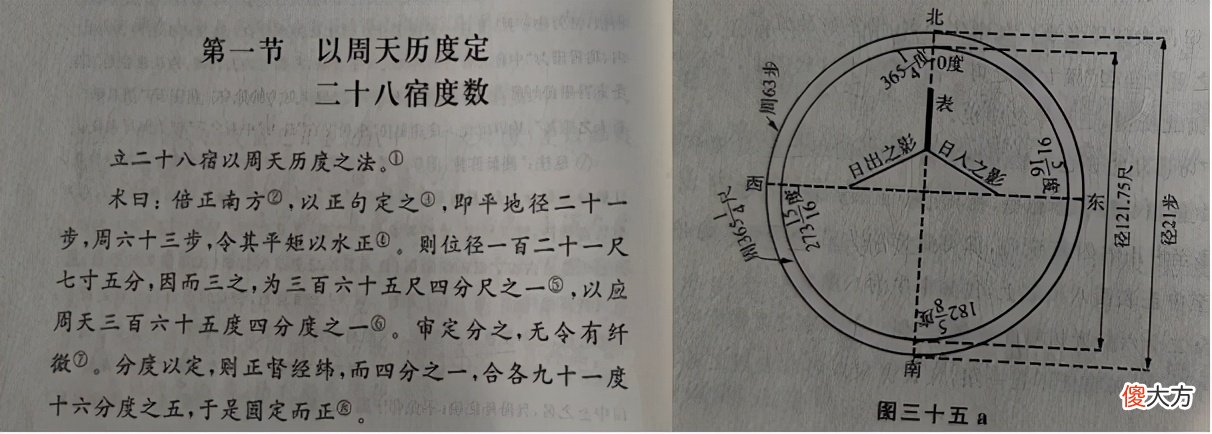 第一节 以周天历度定
二十八宿度数
立二十八宿以周天历度之法。①
术曰：倍正南方②，以正句定之④，即平地径二十一
步，周六十三步，令其平矩以水正④。则位径一百二十一尺
七寸五分，因而三之，为三百六十五尺四分尺之一⑤，以应
周天三百六十五度四分度之一⑥。审定分之，无令有纤
微⑦。分度以定，则正督经纬，而四分之一，合各九十一度
十六分度之五，于是圆定而正⑧。
北
365 1/4度
0度
周63步
表
日出之影
日入之影
91 5/16度
西
东
周365 1/4尺
273 15/16度
182 5/8度
南
径121.75尺
径21步
图三十五 a
傻大方